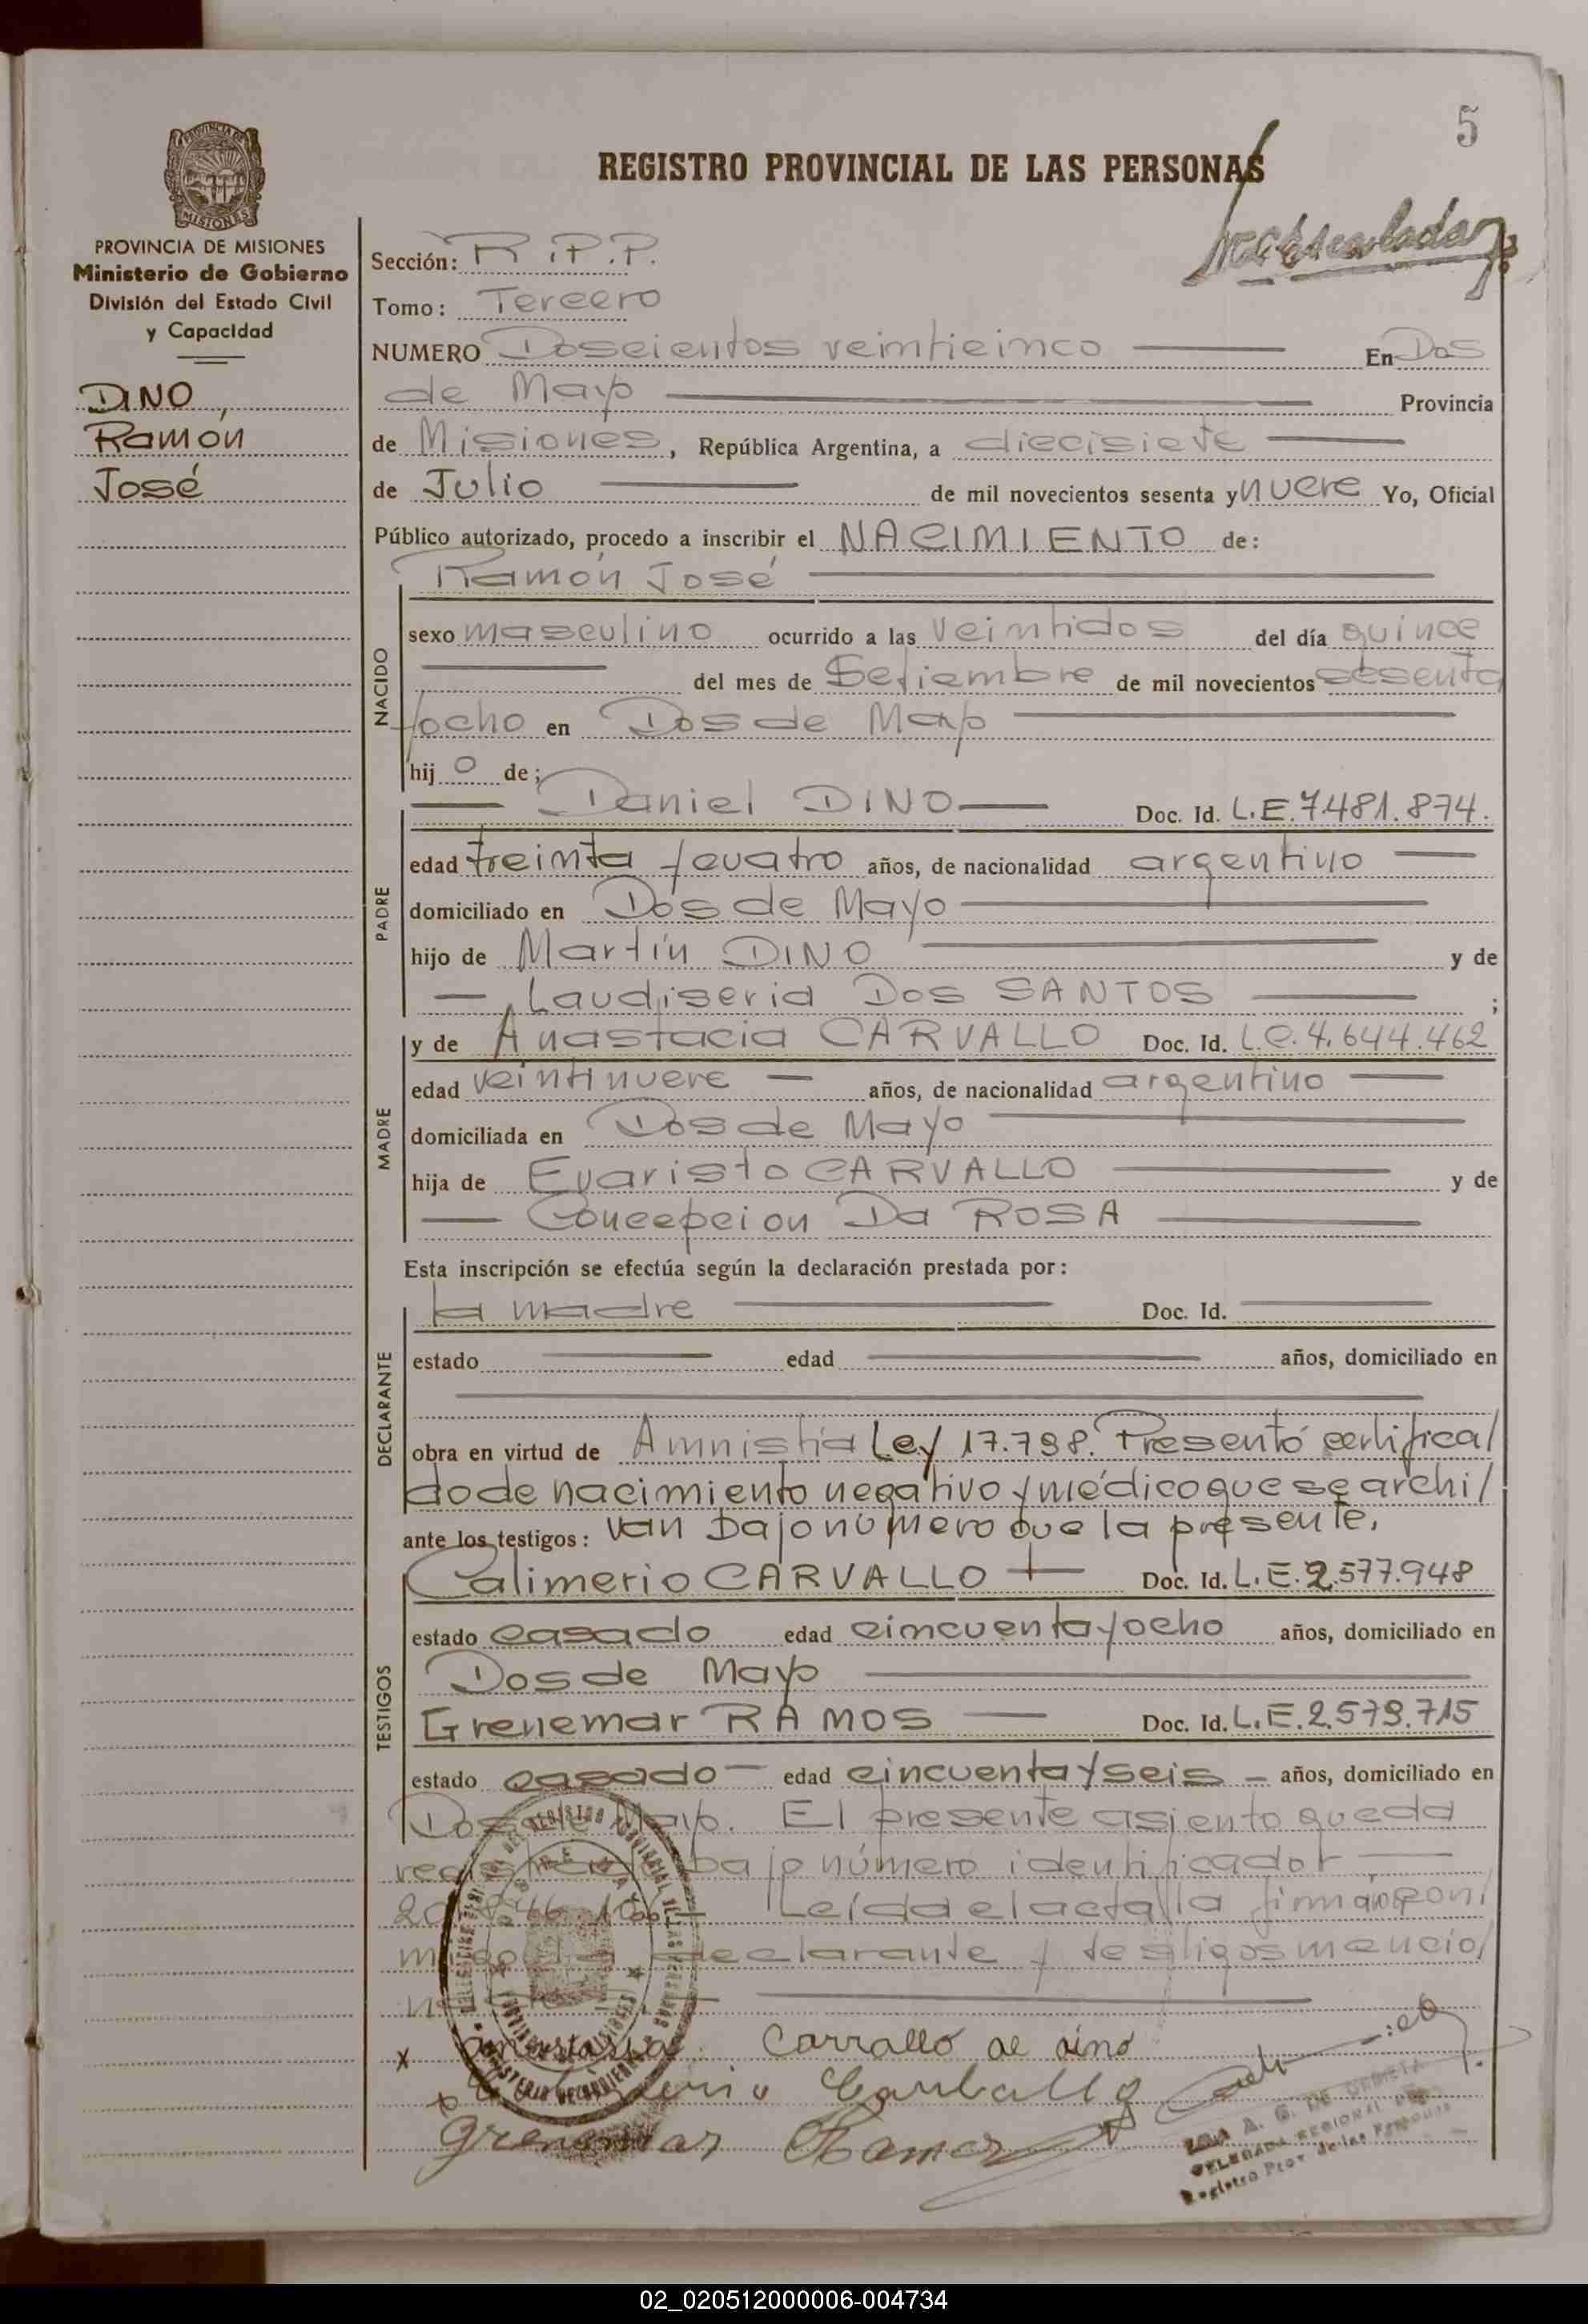 5
REGISTRO PROVINCIAL DE LAS PERSONAS
PROVINCIA DE MISIONES
Ministerio de Gobierno
División del Estado Civil
y Capacidad
DINO,
Ramón
José
Sección: R.P.P.
Tomo: Tercero
NUMERO Doscientos veinticinco En Dos
de Mayo Provincia
de Misiones, República Argentina, a diecisiete
de Julio de mil novecientos sesenta y nueve Yo, Oficial
Público autorizado, procedo a inscribir el NACIMIENTO de:
Ramón José
NACIDO
sexo masculino ocurrido a las veintidos del día quince
del mes de Setiembre de mil novecientos sesenta
y ocho en Dos de Mayo
hijo de;
Daniel DINO Doc. Id. L.E. 7.481.874.
PADRE
edad treinta y cuatro años, de nacionalidad argentino
domiciliado en Dos de Mayo
hijo de Martín DINO y de
Laudiseria DOS SANTOS ;
y de Anastacia CARVALLO Doc. Id. L.C. 4.644.462
MADRE
edad veintinueve años, de nacionalidad argentino
domiciliada en Dos de Mayo
hija de Evaristo CARVALLO y de
Concepcion Da ROSA
Esta inscripción se efectúa según la declaración prestada por:
la madre Doc. Id.
DECLARANTE
estado edad años, domiciliado en
obra en virtud de Amnistía Ley 17.798. Presentó certifica/
do de nacimiento negativo y médico que se archi/
ante los testigos: van bajo número que la presente.
TESTIGOS
Calimerio CARVALLO Doc. Id. L.E. 2.577.948
estado casado edad cincuenta y ocho años, domiciliado en
Dos de Mayo
Grenemar RAMOS Doc. Id. L.E. 2.579.715
estado casado edad cincuenta y seis años, domiciliado en
Dos de Mayo. El presente asiento queda
bajo número identificador
Leída el acta, la firman con/
declarante y testigos mencio/
x Anastasia Carvallo de Dino
x Carballo
Grenemar Ramos
DELEGADA REGIONAL
Registro Prov. de las Personas
02_020512000006-004734